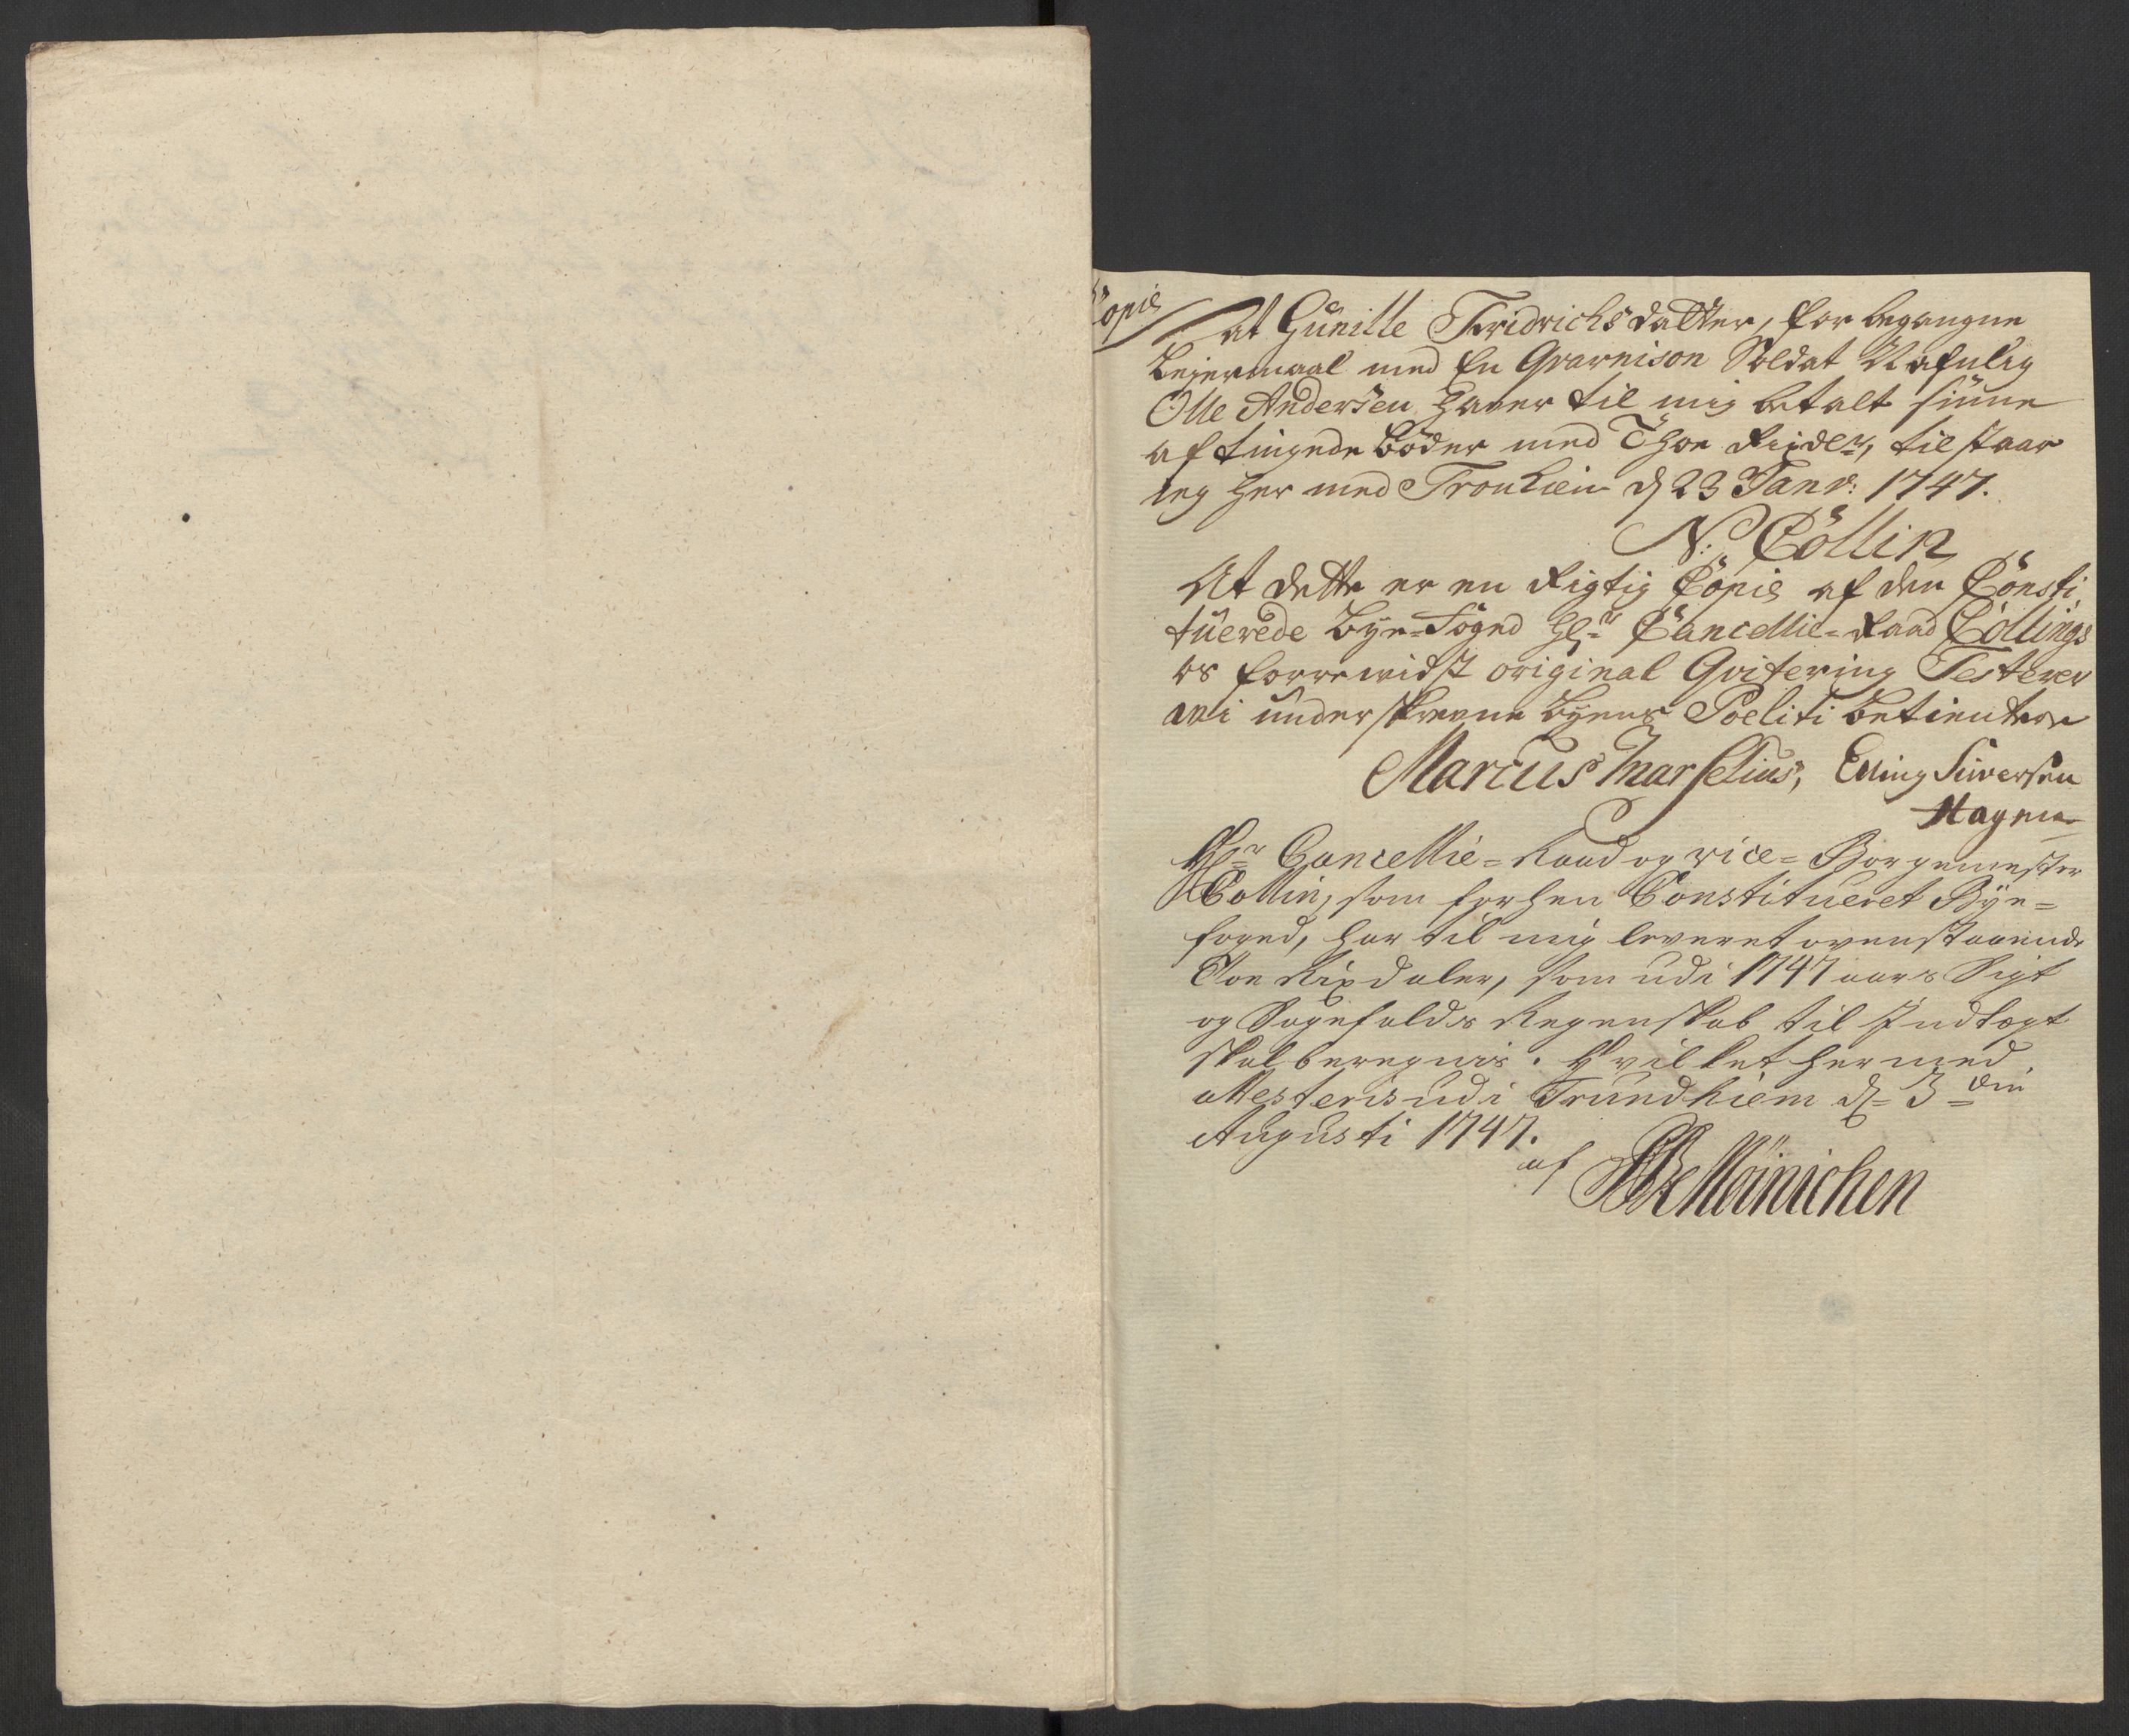 Copie
At Gunille Fridrichsdatter, for begangne
Leiermaal med En Gvarnison Soldat Nafnlig
Olle Andersen haver til mig betalt sinne
aftingede Böder med Thoe Rixdr, tilstaar
ieg her med Tronhiem d 23 Janv: 1747.
N: Cöllin
At dette er en Rigtig Copie af den Consti
tuerede Bye-Foged Hr Cancellie-Raad Collings
os forrewidst original Qvitering Testerer
wi underskrevne Byens Poeliti betientere
Marcus Marselius, Elling Siversen
Hagen
Hr Cancellie-Raad og vice-Borgemester
Collin, som forhen Constitueret Bÿe-
foged, har til mig leveret ovenstaaende
Toe Rixdaler, som udi 1747 aars Sigt
og Sagefalds Regenskab til Indtægt
skal beregnis. Hvilket hermed
Attesteris udi Trundhiem d 3die
Augusti 1747.
af Möinichen